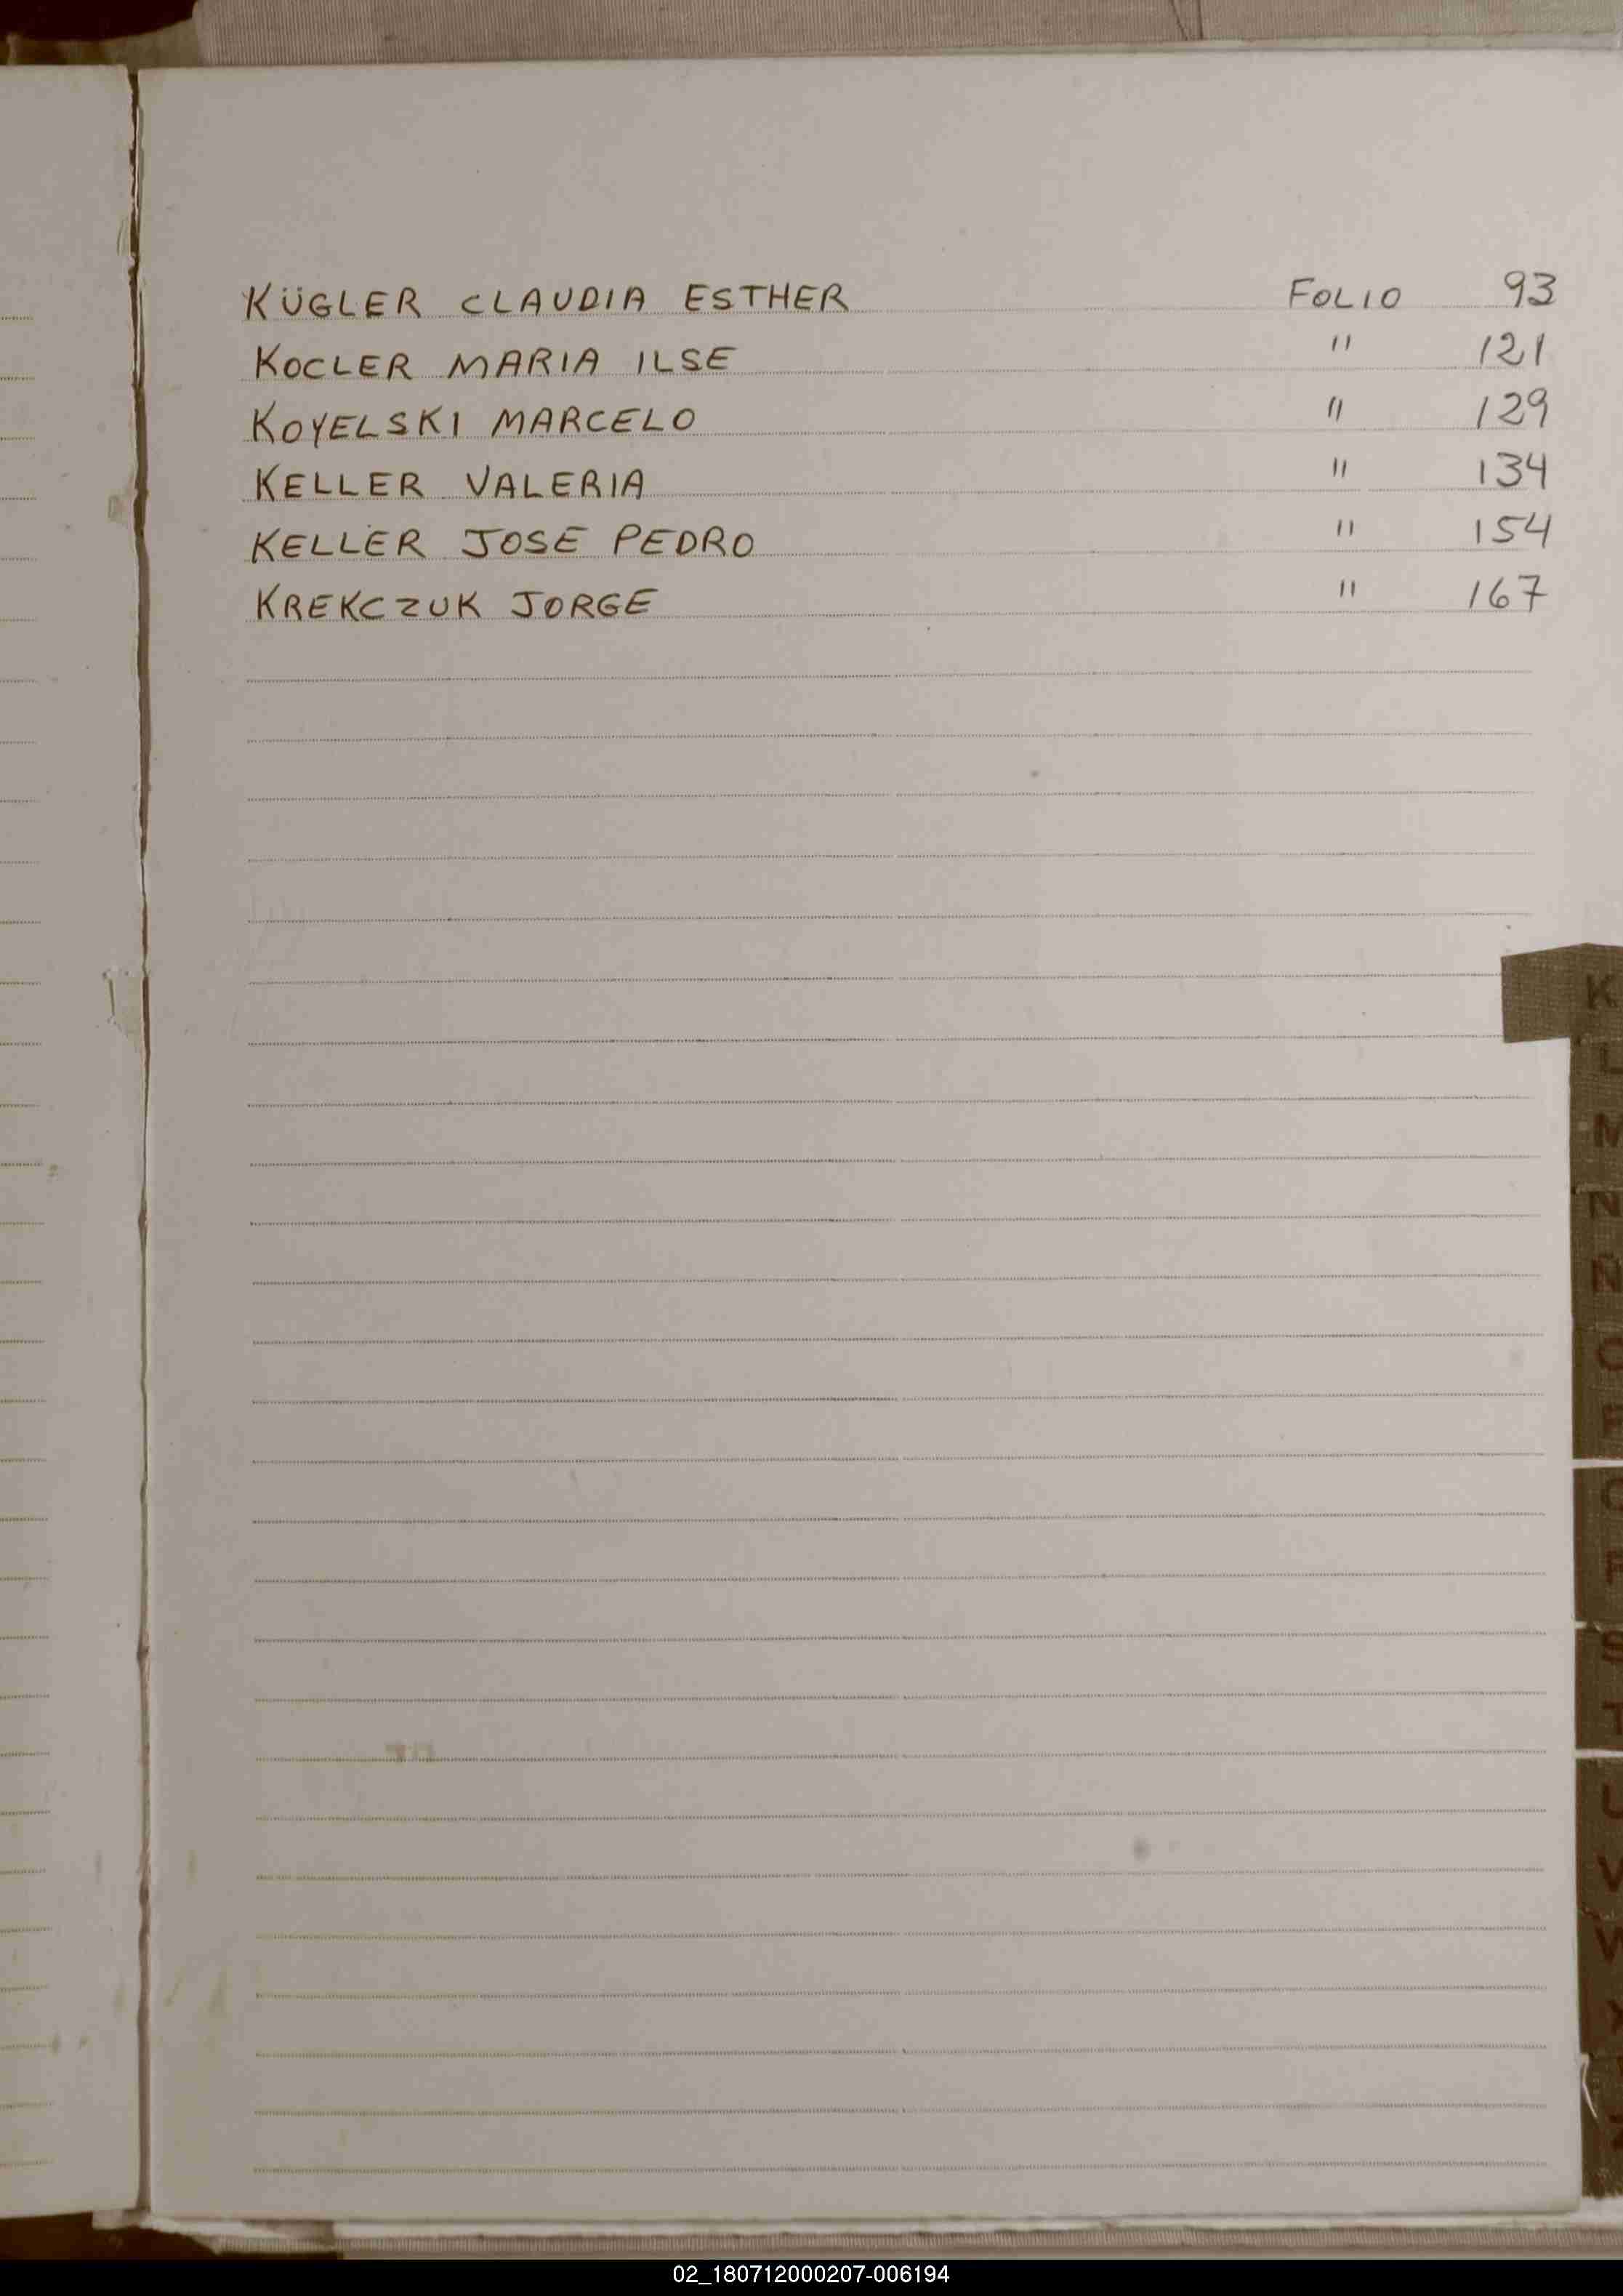 KÜGLER CLAUDIA ESTHER FOLIO 93
KOCLER MARIA ILSE " 121
KOYELSKI MARCELO " 129
KELLER VALERIA " 134
KELLER JOSE PEDRO " 154
KREKCZUK JORGE " 167
K
L
M
N
N
O
P
Q
R
S
T
U
V
W
02_180712000207-006194